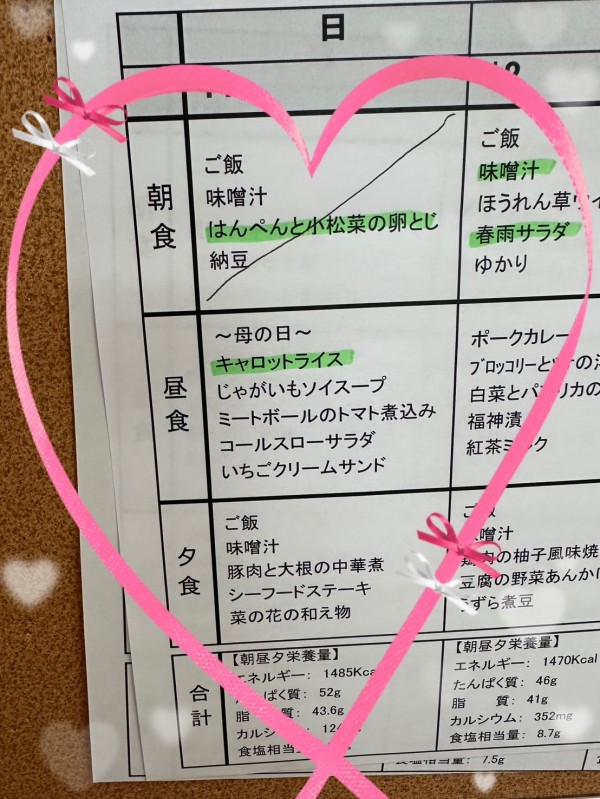 日
朝食
ご飯
味噌汁
はんぺんと小松菜の卵とじ
納豆
ご飯
味噌汁
ほうれん草
春雨サラダ
ゆかり
昼食
~母の日~
キャロットライス
じゃがいもソイスープ
ミートボールのトマト煮込み
コールスローサラダ
いちごクリームサンド
ポークカレー
ブロッコリーと
白菜と
福神漬
紅茶ミルク
夕食
ご飯
味噌汁
豚肉と大根の中華煮
シーフードステーキ
菜の花の和え物
ご飯
味噌汁
の柚子風味焼
豆腐の野菜あんか
うずら煮豆
合計
【朝昼夕栄養量】
エネルギー: 1485Kca
たんぱく質: 52g
脂 質: 43.6g
カルシウム: 12
食塩相当
【朝昼夕栄養量】
エネルギー: 1470Kcal
たんぱく質: 46g
脂 質: 41g
カルシウム: 352mg
食塩相当量: 8.7g
食塩相当量: 7.5g